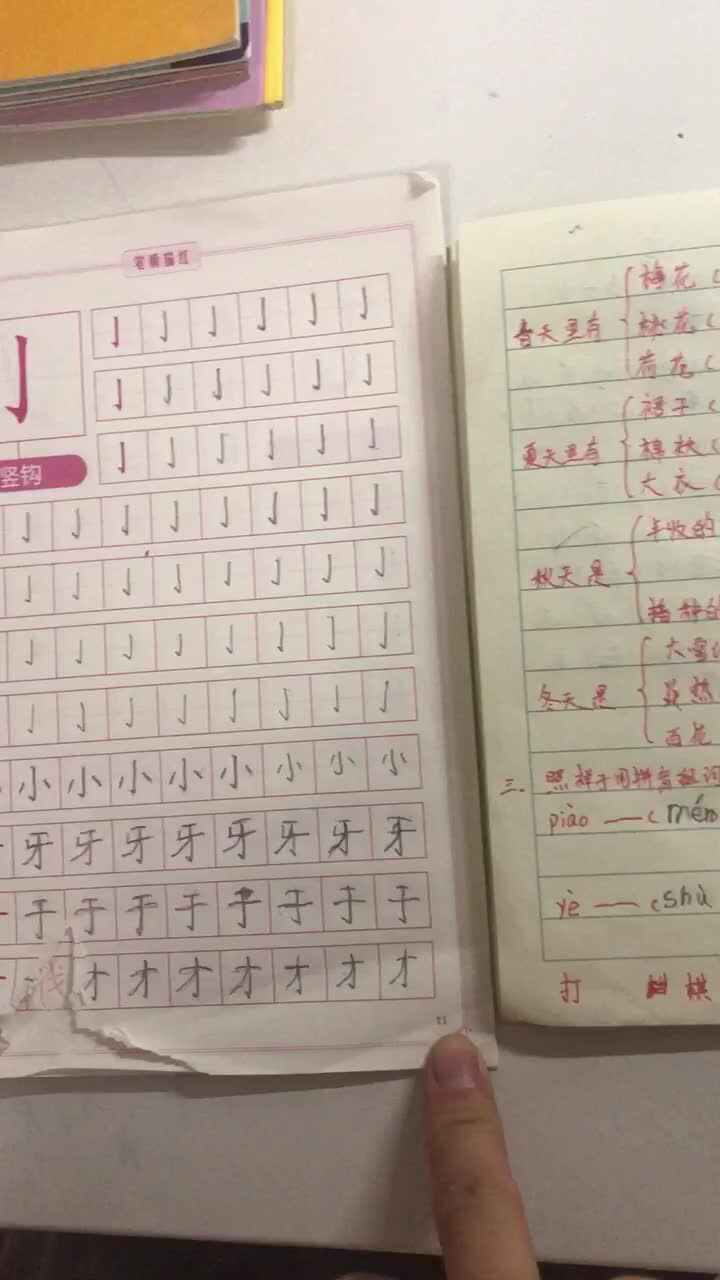 笔顺描红
亅 亅 亅 亅 亅 亅 亅
亅 亅 亅 亅 亅 亅
竖钩 亅 亅 亅 亅 亅 亅
亅 亅 亅 亅 亅 亅 亅 亅
亅 亅 亅 亅 亅 亅 亅 亅
亅 亅 亅 亅 亅 亅 亅 亅
亅 亅 亅 亅 亅 亅 亅 亅
小 小 小 小 小 小 小 小
牙 牙 牙 牙 牙 牙 牙 牙
于 于 于 于 于 于 于 于
才 才 才 才 才 才 才
11
春天里有
梅花（
桃花（
荷花（
夏天里有
裙子（
棉袄（
大衣（
秋天是
丰收的
冬天是
大雪
虽然
百花
三. 照样子用拼音组词
piào —（
yè —（shù
打 棋